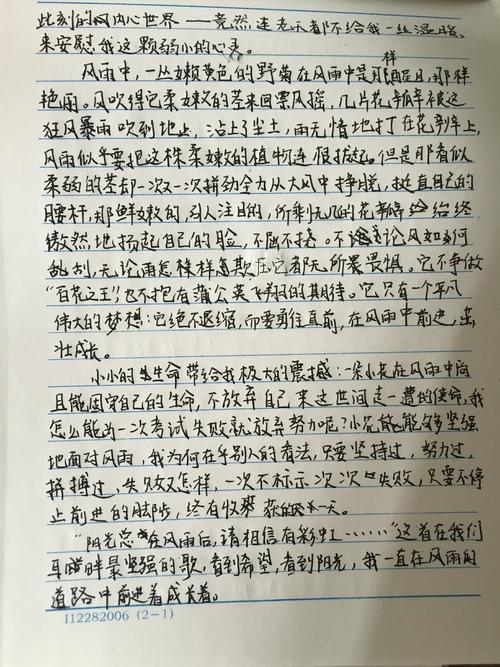 此刻的我内心世界——竟然连老天都不给我一丝温暖,
来安慰我这颗弱小的心灵。
风雨中,一丛嫩黄色的野菊在风雨中是那样醒目,那样
艳丽。风吹得它柔嫩的茎来回飘摇,几片花瓣被这
狂风暴雨吹到地上,沾上了尘土,雨无情地打在花瓣上,
风雨似乎要把这株柔嫩的植物连根拔起。但是那看似
柔弱的茎却一次又一次拼劲全力从大风中挣脱,挺直自己的
腰杆,那鲜嫩的,引人注目的,所剩无几的花瓣给给终
傲然地扬起自己的脸,不屈不挠。不论风如何
乱刮,无论雨怎样欺压它都无所畏惧。它不争做
“百花之王”,也不抱有蒲公英飞翔的期待。它只有一个平凡
伟大的梦想:它绝不退缩,而要勇往直前,在风雨中前进,茁
壮成长。
小小的生命带给我极大的震撼:一朵小花在风雨中尚
且能固守自己的生命,不放弃自己来这世间走一遭的使命,我
怎么能为一次考试失败就放弃努力呢?小花能能够坚强
地面对风雨,我为何在乎别人的看法,只要坚持过,努力过,
拼搏过,失败又怎样,一次不标示次次失败,只要不停
止前进的脚步,终有收获的一天。
“阳光总在风雨后,请相信有彩虹……”这首在我们
耳畔最坚强的歌,看到希望,看到阳光,我一直在风雨的
道路中前进着成长着。
112282006 (2-1)